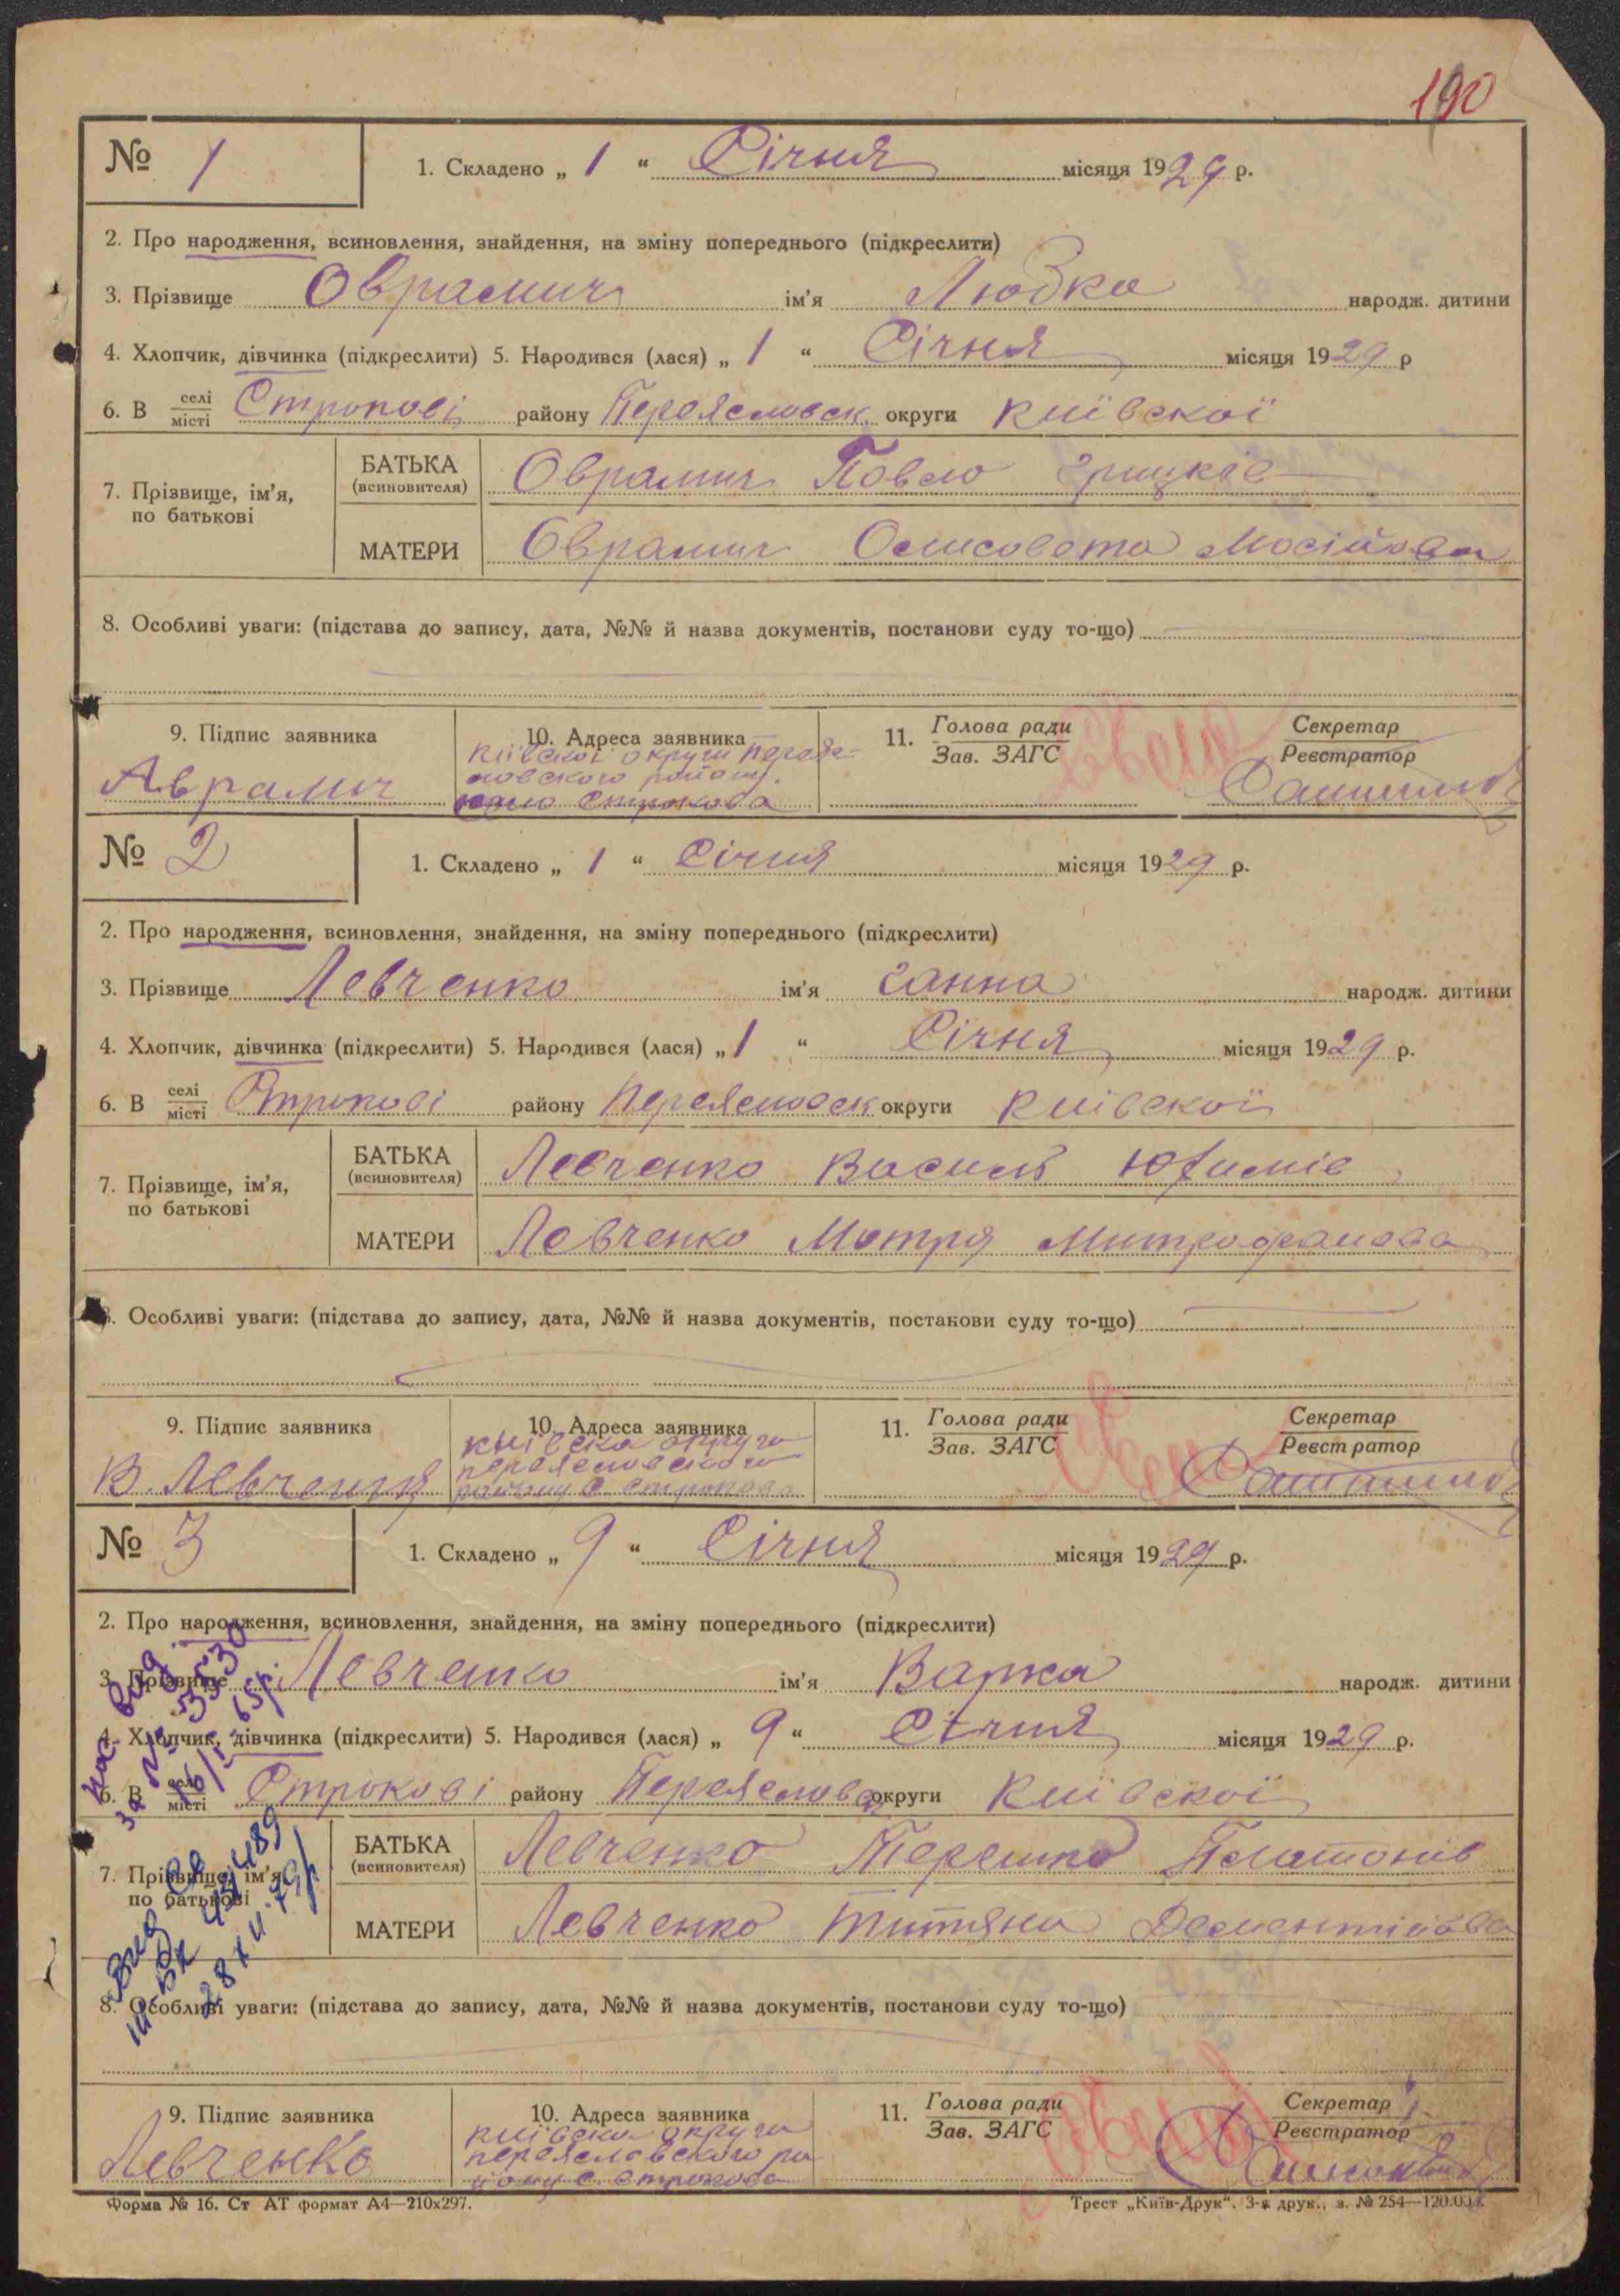 190
№ 1
1. Складено „ 1 “ Січня місяця 1929 р.
2. Про народження, всиновлення, знайдення, на зміну попереднього (підкреслити)
3. Прізвище Оврамич ім'я Любка народж. дитини
4. Хлопчик, дівчинка (підкреслити) 5. Народився (лася) „ 1 “ Січня місяця 1929 р
6. В селі місті Строкові району Переясловск. округи Київскої
7. Прізвище, ім'я, по батькові
БАТЬКА (всиновителя) Оврамич Повло Грицків
МАТЕРИ Оврамич Олисовета Мосійова
8. Особливі уваги: (підстава до запису, дата, №№ й назва документів, постанови суду то-що)
9. Підпис заявника
Аврамич
10. Адреса заявника
Київскої округи Переяс-
ловского району.
село Строкова
11. Голова ради
Зав. ЗАГС
Секретар
Реєстратор
№ 2
1. Складено „ 1 “ Січня місяця 1929 р.
2. Про народження, всиновлення, знайдення, на зміну попереднього (підкреслити)
3. Прізвище Левченко ім'я Ганна народж. дитини
4. Хлопчик, дівчинка (підкреслити) 5. Народився (лася) „ 1 “ Січня місяця 1929 р.
6. В селі місті Строкові району Переясловск округи Київскої
7. Прізвище, ім'я, по батькові
БАТЬКА (всиновителя) Левченко Василь Юхимів
МАТЕРИ Левченко Мотря Митрофанова
8. Особливі уваги: (підстава до запису, дата, №№ й назва документів, постанови суду то-що)
9. Підпис заявника
В. Левченко
10. Адреса заявника
Київска округи
переясловского
району с. Строкова
11. Голова ради
Зав. ЗАГС
Секретар
Реєстратор
№ 3
1. Складено „ 9 “ Січня місяця 1929 р.
2. Про народження, всиновлення, знайдення, на зміну попереднього (підкреслити)
3. Прізвище Левченко ім'я Варка народж. дитини
4. Хлопчик, дівчинка (підкреслити) 5. Народився (лася) „ 9 “ Січня місяця 1929 р.
6. В селі місті Строкові району Переяслов округи Київскої
7. Прізвище, ім'я, по батькові
БАТЬКА (всиновителя) Левченко Терешко Платонів
МАТЕРИ Левченко Титяна Дементійова
8. Особливі уваги: (підстава до запису, дата, №№ й назва документів, постанови суду то-що)
9. Підпис заявника
Левченко
10. Адреса заявника
Київска округи
переясловского ра
йону с. Строкова
11. Голова ради
Зав. ЗАГС
Секретар
Реєстратор
Форма № 16. Ст АТ формат А4—210х297.
Трест „Київ-Друк“. 3-я друк., з. № 254—120.000.